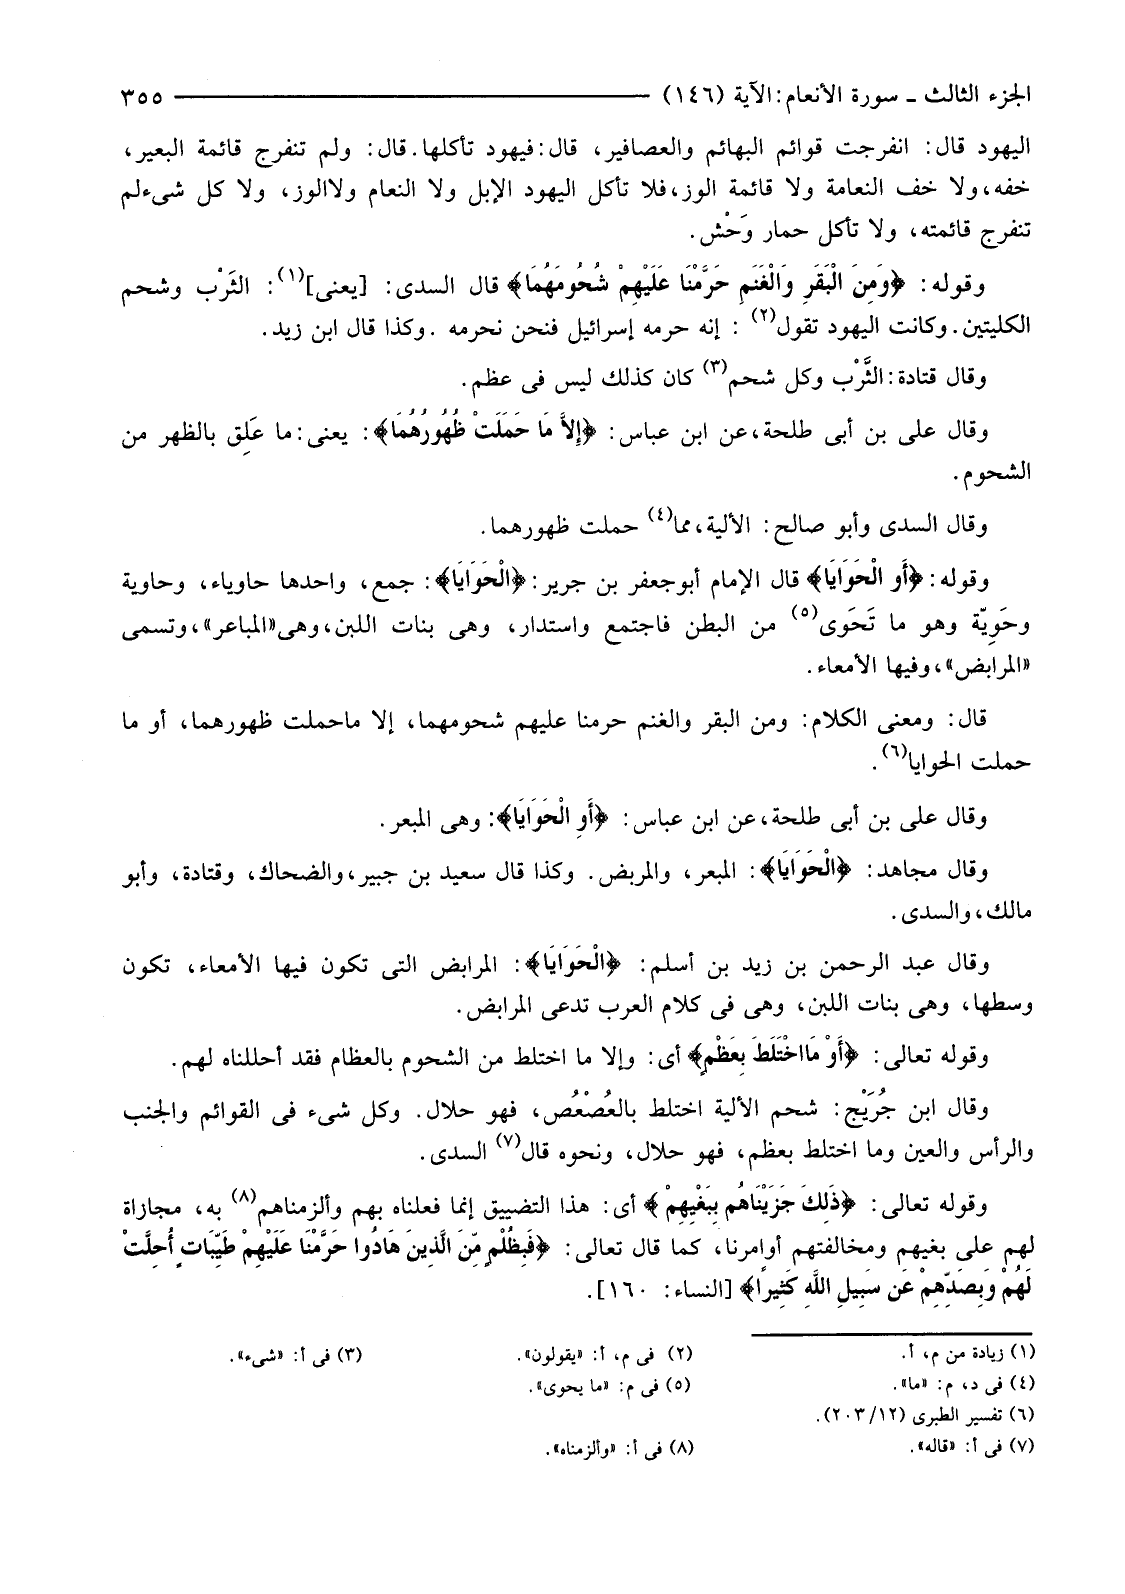 الجزء الثالث ـ سورة الأنعام: الآية (١٤٦) ٣٥٥
اليهود قال: انفرجت قوائم البهائم والعصافير، قال: فيهود تأكلها. قال: ولم تنفرج قائمة البعير،
خفه، ولا خف النعامة ولا قائمة الوز، فلا تأكل اليهود الإبل ولا النعام ولاالوز، ولا كل شىءلم
تنفرج قائمته، ولا تأكل حمار وَحْش.
وقوله: ﴿وَمِنَ الْبَقَرِ وَالْغَنَمِ حَرَّمْنَا عَلَيْهِمْ شُحُومَهُمَا﴾ قال السدى: [يعنى](١): الثَرْب وشحم
الكليتين. وكانت اليهود تقول(٢) : إنه حرمه إسرائيل فنحن نحرمه . وكذا قال ابن زيد.
وقال قتادة: الثَّرْب وكل شحم(٣) كان كذلك ليس فى عظم.
وقال على بن أبى طلحة، عن ابن عباس: ﴿إِلاَّ مَا حَمَلَتْ ظُهُورُهُمَا﴾: يعنى: ما عَلِق بالظهر من
الشحوم.
وقال السدى وأبو صالح: الألية، مما(٤) حملت ظهورهما.
وقوله: ﴿أَوِ الْحَوَايَا﴾ قال الإمام أبوجعفر بن جرير: ﴿الْحَوَايَا﴾: جمع، واحدها حاوياء، وحاوية
وحَوِيّة وهو ما تَحَوى(٥) من البطن فاجتمع واستدار، وهى بنات اللبن، وهى«المباعر»، وتسمى
«المرابض»، وفيها الأمعاء.
قال: ومعنى الكلام: ومن البقر والغنم حرمنا عليهم شحومهما، إلا ماحملت ظهورهما، أو ما
حملت الحوايا(٦).
وقال على بن أبى طلحة، عن ابن عباس: ﴿أَوِ الْحَوَايَا﴾: وهى المبعر.
وقال مجاهد: ﴿الْحَوَايَا﴾: المبعر، والمربض. وكذا قال سعيد بن جبير، والضحاك، وقتادة، وأبو
مالك، والسدى.
وقال عبد الرحمن بن زيد بن أسلم: ﴿الْحَوَايَا﴾: المرابض التى تكون فيها الأمعاء، تكون
وسطها، وهى بنات اللبن، وهى فى كلام العرب تدعى المرابض.
وقوله تعالى: ﴿أَوْ مَا اخْتَلَطَ بِعَظْمٍ﴾ أى: وإلا ما اختلط من الشحوم بالعظام فقد أحللناه لهم.
وقال ابن جُرَيْج: شحم الألية اختلط بالعُصْعُص، فهو حلال. وكل شىء فى القوائم والجنب
والرأس والعين وما اختلط بعظم، فهو حلال، ونحوه قال(٧) السدى.
وقوله تعالى: ﴿ذَلِكَ جَزَيْنَاهُم بِبَغْيِهِمْ﴾ أى: هذا التضييق إنما فعلناه بهم وألزمناهم(٨) به، مجازاة
لهم على بغيهم ومخالفتهم أوامرنا، كما قال تعالى: ﴿فَبِظُلْمٍ مِّنَ الَّذِينَ هَادُوا حَرَّمْنَا عَلَيْهِمْ طَيِّبَاتٍ أُحِلَّتْ
لَهُمْ وَبِصَدِّهِمْ عَن سَبِيلِ اللَّهِ كَثِيرًا﴾ [النساء: ١٦٠].
(١) زيادة من م، أ. (٢) فى م، أ: «يقولون». (٣) فى أ: «شىء».
(٤) فى د، م: «ما». (٥) فى م: «ما يحوى».
(٦) تفسير الطبرى (٢٠٣/١٢).
(٧) فى أ: «قاله». (٨) فى أ: «وألزمناه».